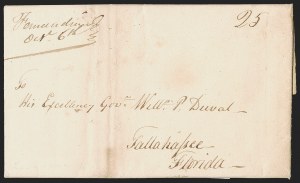 Fernandina
Oct. 6th
25
To
His Excellency Gov. Willm. P. Duval
Tallahassee
Florida